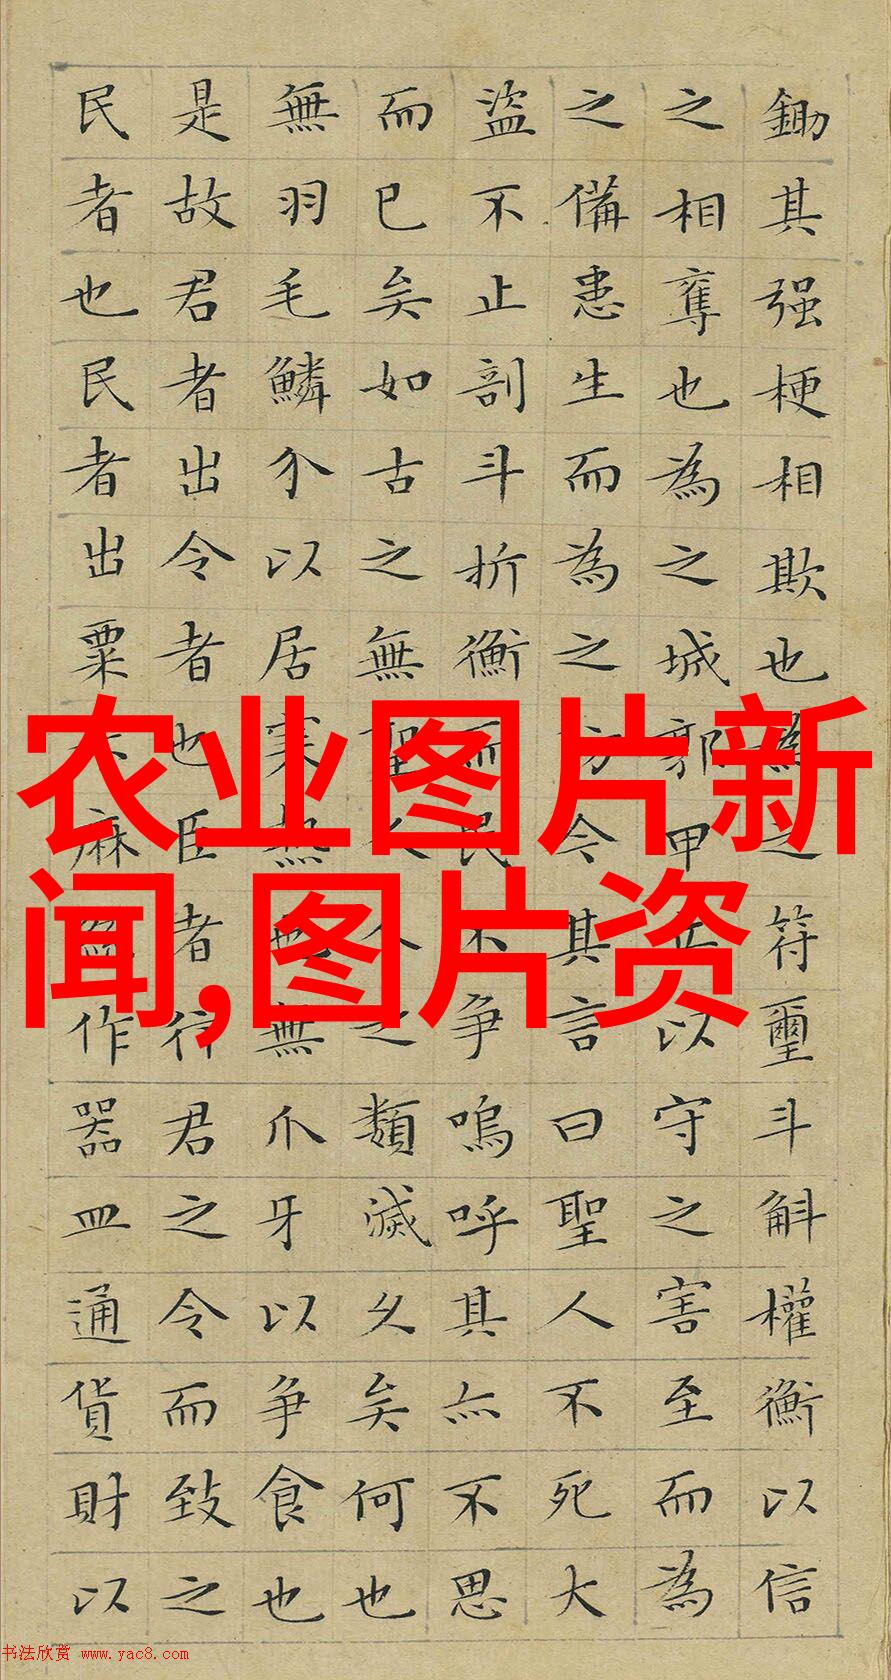 鋤其强梗相欺也為之符璽斗斛權衡以信
之相奪也為之城郭甲兵以守之害至而為
之備患生而為之防今其言曰聖人不死大
盜不止剖斗折衡而民不爭嗚呼其亦不思
而已矣如古之無聖人人之類滅久矣何也
無羽毛鱗介以居寒熱也無爪牙以爭食也
是故君者出令者也臣者行君之令而致之
民者也民者出粟米麻絲作器皿通貨財以
农业图片新
闻,图片资
书法欣赏 www.yac8.com